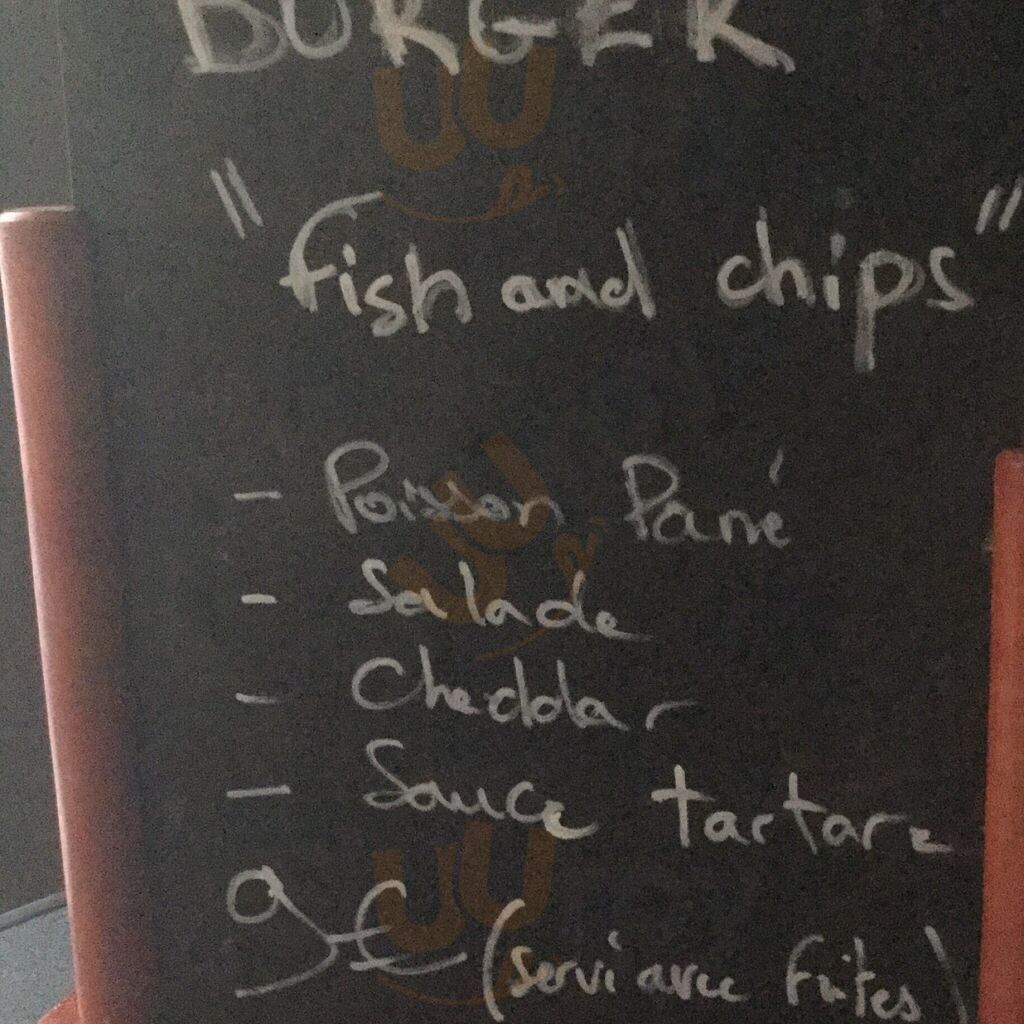 BURGER
"fish and chips"
- Poisson Pané
- Salade
- Cheddar
- Sauce tartare
9€ (servi avec frites)